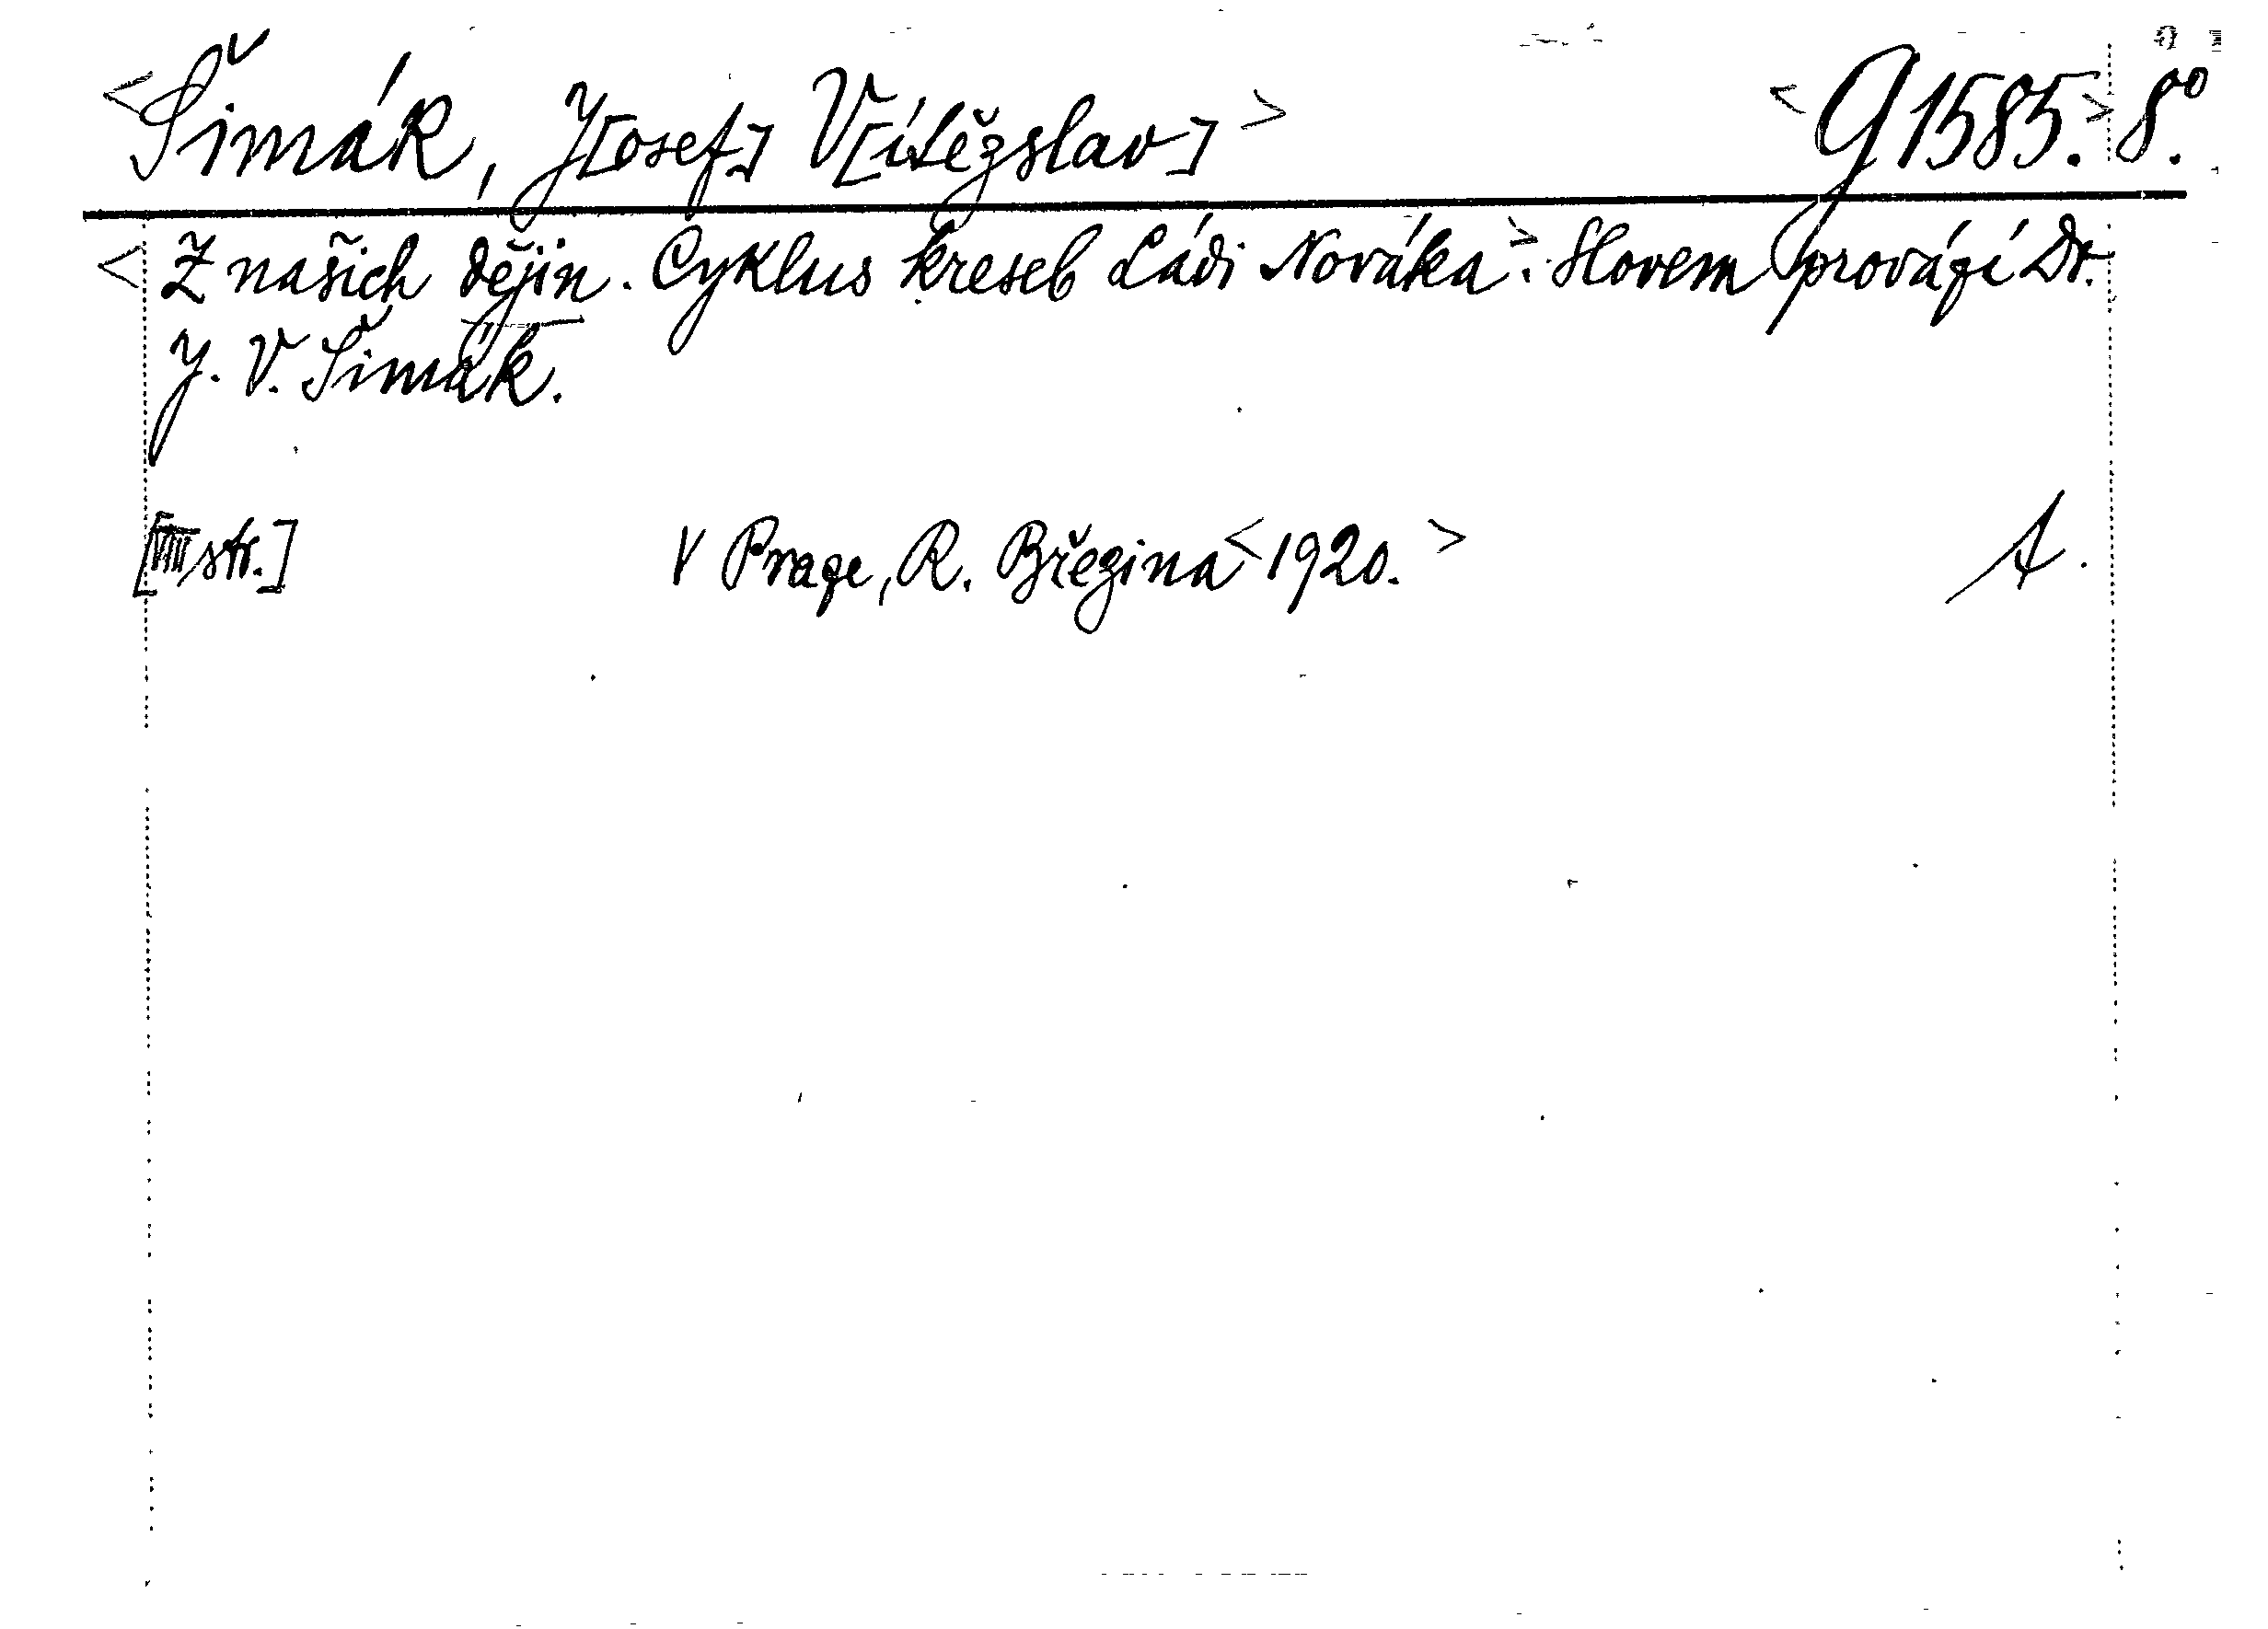 <Šimák, J[osef] V[ítězslav]> <G 1585.> 8°.
<Z našich dějin. Cyklus kreseb Ládi Nováka>. Slovem provází Dr.
J. V. Šimák.
[VIII str.] V Praze, R. Březina <1920.> A.